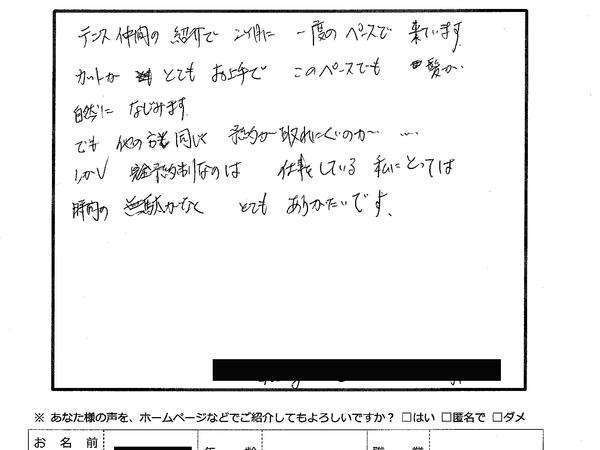 テニス仲間の 紹介で 二ヶ月に 一度の ペースで 来ています
カットが とても お上手で このペースでも 髪が
自然に なじみます
でも 他の方も同じく 予約が取れにくいのが…
しかし 完全予約制なのは 仕事をしている 私にとっては
時間の 無駄がなく とても ありがたいです、
※ あなた様の声を、ホームページなどでご紹介してもよろしいですか？ □はい □匿名で □ダメ
お 名 前 年 齢 職 業